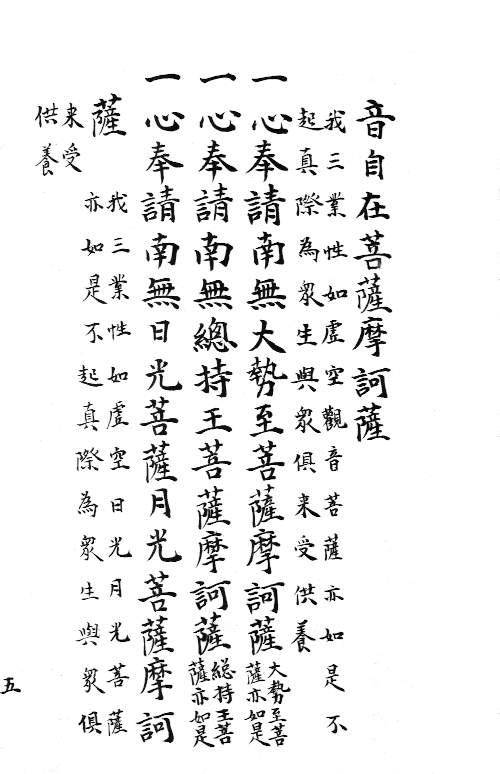 音自在菩薩摩訶薩
我三業性如虛空觀音菩薩亦如是不
起真際為眾生與眾俱来受供養
一心奉請南無大勢至菩薩摩訶薩
大勢至菩
薩亦如是
一心奉請南無總持王菩薩摩訶薩
総持王菩
薩亦如是
一心奉請南無日光菩薩月光菩薩摩訶
薩
我三業性如虛空日光月光菩薩
亦如是不起真際為眾生與眾俱
来受
供養
五